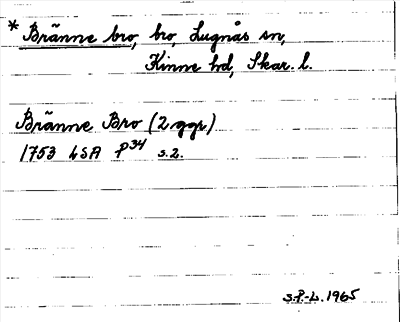 * Bränne bro, bro, Lugnås sn,
Kinne hd, Skar. l.
Bränne Bro (2 ggr)
1753 LSA P34 s.2.
S.P.-L. 1965